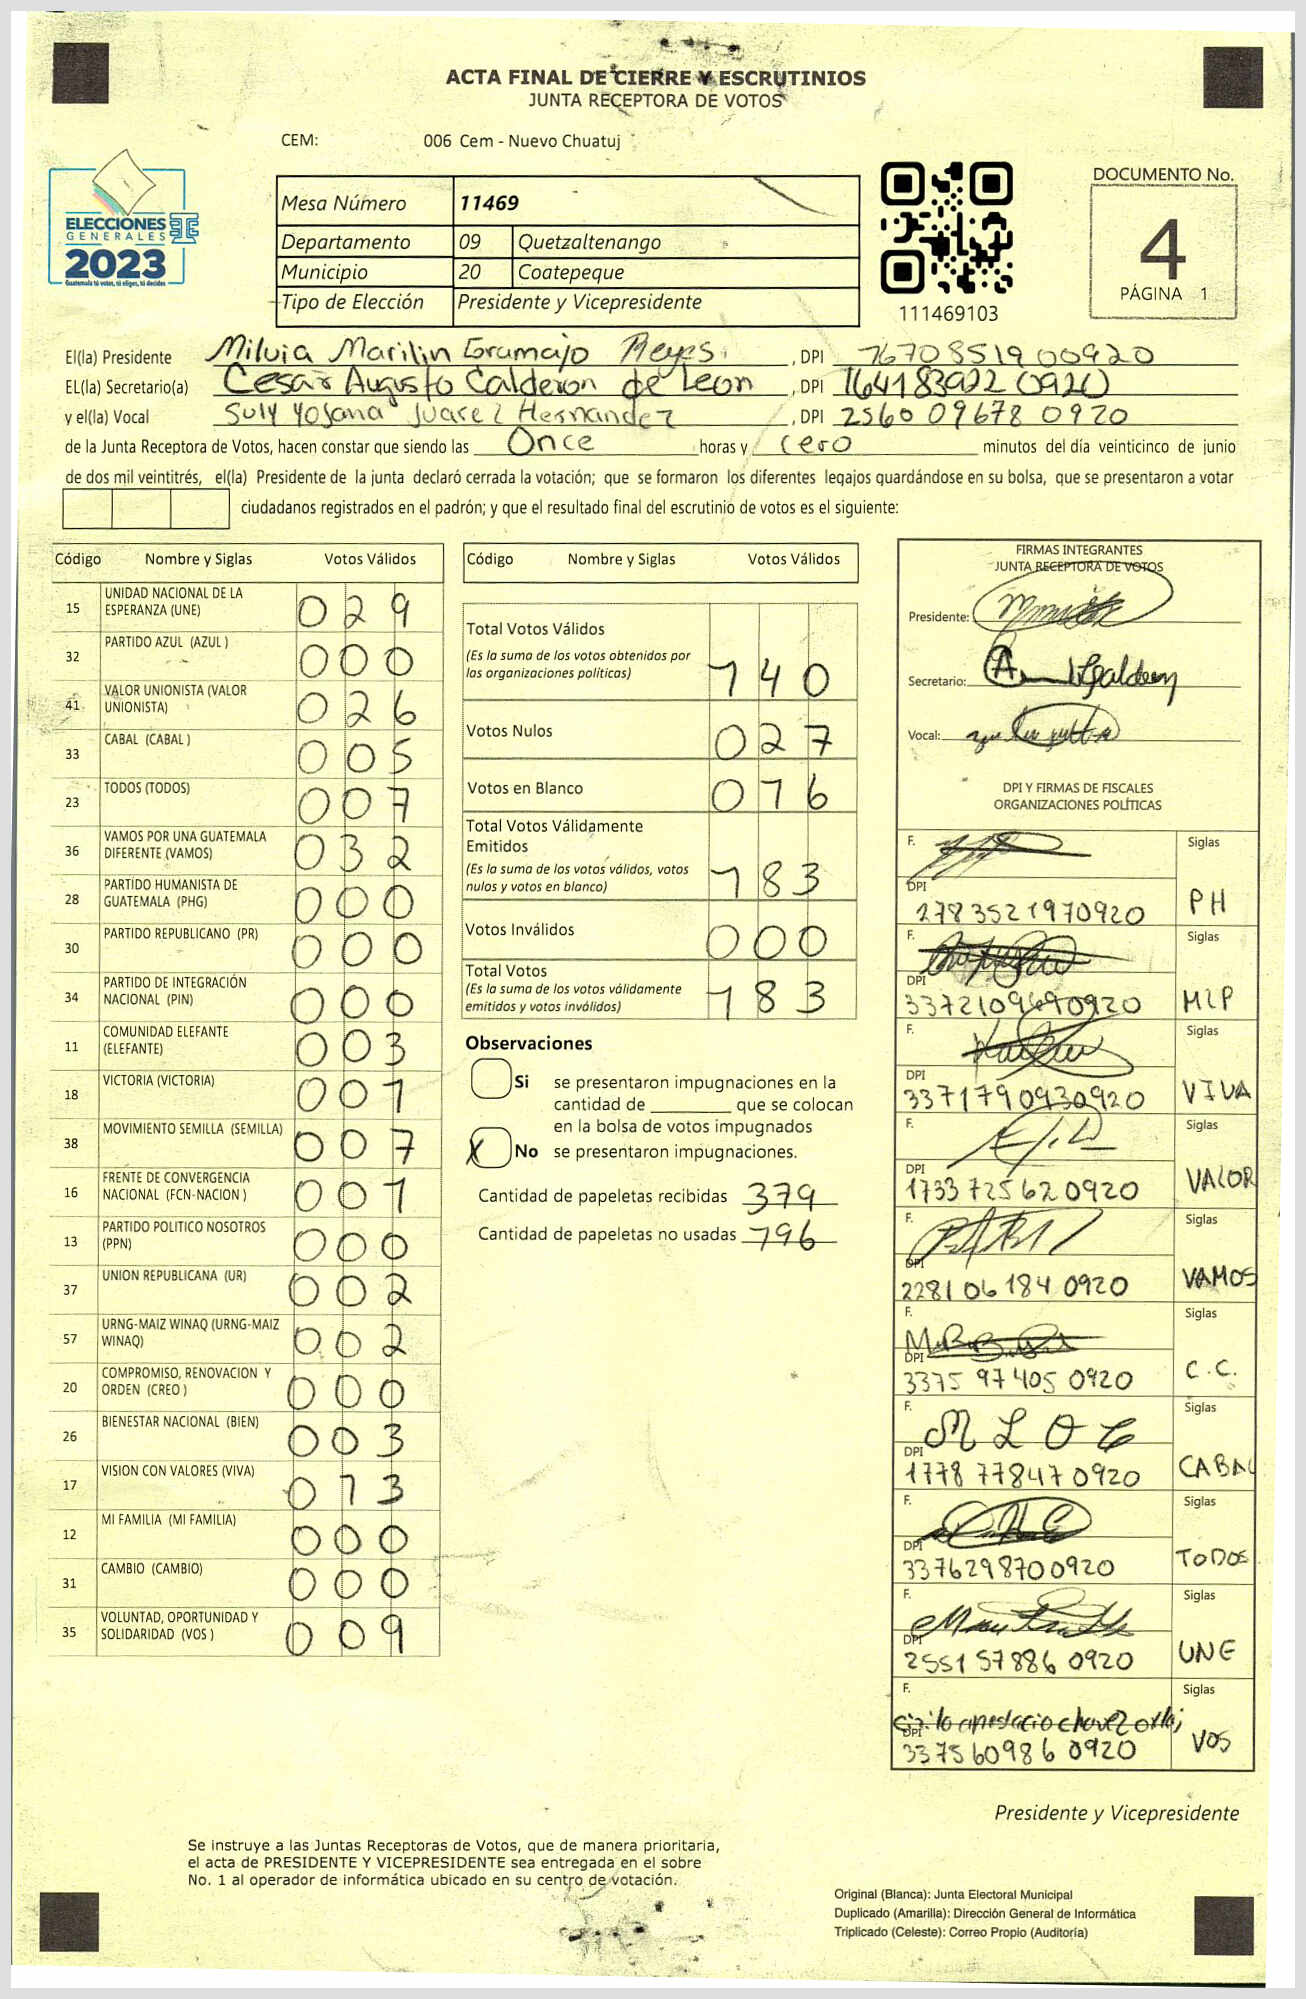 ACTA FINAL DE CIERRE Y ESCRUTINIOS
JUNTA RECEPTORA DE VOTOS
CEM: 006 Cem - Nuevo Chuatuj
ELECCIONES
GENERALES
2023
Guatemala tú votas, tú eliges, tú decides
Mesa Número 11469
Departamento 09 Quetzaltenango
Municipio 20 Coatepeque
Tipo de Elección Presidente y Vicepresidente
111469103
DOCUMENTO No.
4
PÁGINA 1
El(la) Presidente Milvia Marilin Gramajo Reyes, DPI 767085190 0920
EL(la) Secretario(a) Cesar Augusto Calderon de Leon, DPI 164183922 0920
y el(la) Vocal Suly Yosana Juarez Hernandez, DPI 2560 09678 0920
de la Junta Receptora de Votos, hacen constar que siendo las Once horas y cero minutos del día veinticinco de junio
de dos mil veintitrés, el(la) Presidente de la junta declaró cerrada la votación; que se formaron los diferentes legajos guardándose en su bolsa, que se presentaron a votar
ciudadanos registrados en el padrón; y que el resultado final del escrutinio de votos es el siguiente:
Código Nombre y Siglas Votos Válidos
15 UNIDAD NACIONAL DE LA ESPERANZA (UNE) 029
32 PARTIDO AZUL (AZUL ) 000
41 VALOR UNIONISTA (VALOR UNIONISTA) 026
33 CABAL (CABAL ) 005
23 TODOS (TODOS) 007
36 VAMOS POR UNA GUATEMALA DIFERENTE (VAMOS) 032
28 PARTIDO HUMANISTA DE GUATEMALA (PHG) 000
30 PARTIDO REPUBLICANO (PR) 000
34 PARTIDO DE INTEGRACIÓN NACIONAL (PIN) 000
11 COMUNIDAD ELEFANTE (ELEFANTE) 003
18 VICTORIA (VICTORIA) 001
38 MOVIMIENTO SEMILLA (SEMILLA) 007
16 FRENTE DE CONVERGENCIA NACIONAL (FCN-NACION ) 001
13 PARTIDO POLITICO NOSOTROS (PPN) 000
37 UNION REPUBLICANA (UR) 002
57 URNG-MAIZ WINAQ (URNG-MAIZ WINAQ) 002
20 COMPROMISO, RENOVACION Y ORDEN (CREO ) 000
26 BIENESTAR NACIONAL (BIEN) 003
17 VISION CON VALORES (VIVA) 013
12 MI FAMILIA (MI FAMILIA) 000
31 CAMBIO (CAMBIO) 000
35 VOLUNTAD, OPORTUNIDAD Y SOLIDARIDAD (VOS ) 009
Código Nombre y Siglas Votos Válidos
Total Votos Válidos 140
(Es la suma de los votos obtenidos por
las organizaciones políticas)
Votos Nulos 027
Votos en Blanco 016
Total Votos Válidamente
Emitidos 183
(Es la suma de los votos válidos, votos
nulos y votos en blanco)
Votos Inválidos 000
Total Votos 183
(Es la suma de los votos válidamente
emitidos y votos inválidos)
Observaciones
Si se presentaron impugnaciones en la
cantidad de ________ que se colocan
en la bolsa de votos impugnados
X No se presentaron impugnaciones.
Cantidad de papeletas recibidas 379
Cantidad de papeletas no usadas 196
FIRMAS INTEGRANTES
JUNTA RECEPTORA DE VOTOS
Presidente:
Secretario:
Vocal:
DPI Y FIRMAS DE FISCALES
ORGANIZACIONES POLÍTICAS
F. Siglas
DPI 2783521970920 PH
F. Siglas
DPI 3372109690920 MLP
F. Siglas
DPI 3371790930920 VIVA
F. Siglas
DPI 1733 72562 0920 VALOR
F. Siglas
DPI 2281 06184 0920 VAMOS
F. Siglas
DPI 3375 97405 0920 C.C.
F. M L O C Siglas
DPI 1778 77847 0920 CABAL
F. Siglas
DPI 3376298700920 TODOS
F. Siglas
DPI 2551 57886 0920 UNE
F. Siglas
DPI 3375 60986 0920 VOS
Presidente y Vicepresidente
Se instruye a las Juntas Receptoras de Votos, que de manera prioritaria,
el acta de PRESIDENTE Y VICEPRESIDENTE sea entregada en el sobre
No. 1 al operador de informática ubicado en su centro de votación.
Original (Blanca): Junta Electoral Municipal
Duplicado (Amarilla): Dirección General de Informática
Triplicado (Celeste): Correo Propio (Auditoría)